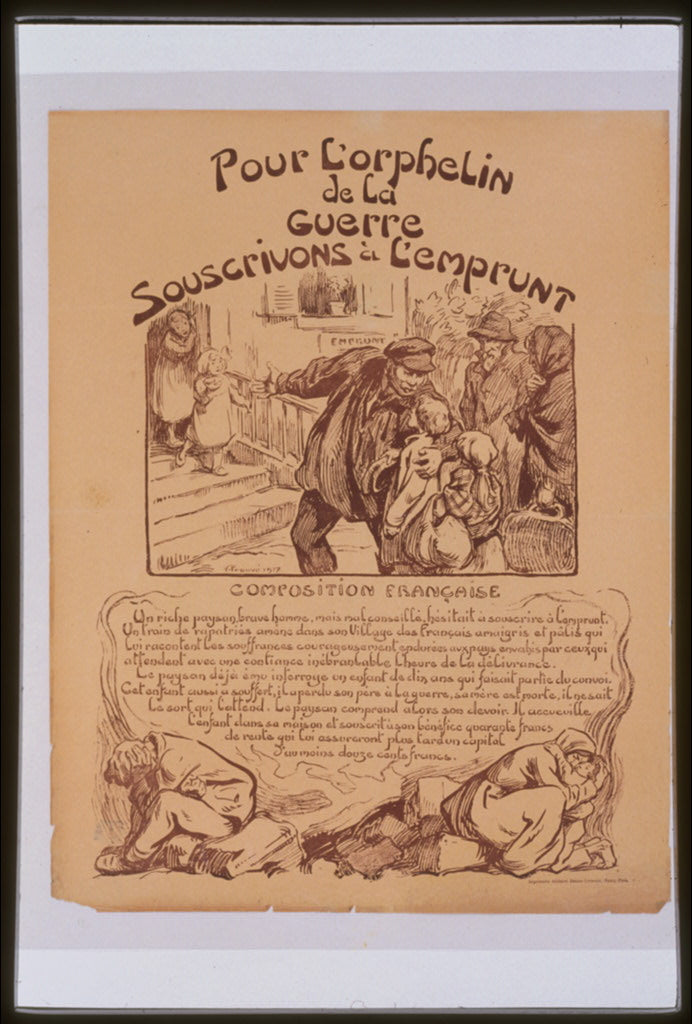 Pour L'orphelin
de La
Guerre
Souscrivons à L'emprunt
EMPRUNT
1917
COMPOSITION FRANÇAISE
Un riche paysan, brave homme, mais mal conseillé, hésitait à souscrire à l'emprunt.
Un train de rapatriés amène dans son Village des Français amaigris et pâlis qui
lui racontent les souffrances courageusement endurées aux pays envahis par ceux qui
attendent avec une confiance inébranlable l'heure de la délivrance.
Le paysan déjà ému interroge un enfant de dix ans qui faisait partie du convoi.
Cet enfant aussi a souffert, il a perdu son père à la guerre, sa mère est morte, il ne sait
le sort qui l'attend. Le paysan comprend alors son devoir. Il accueville
l'enfant dans sa maison et souscrit à son bénéfice quarante francs
de rente qui lui assureront plus tard un capital
d'au moins douze cents francs.